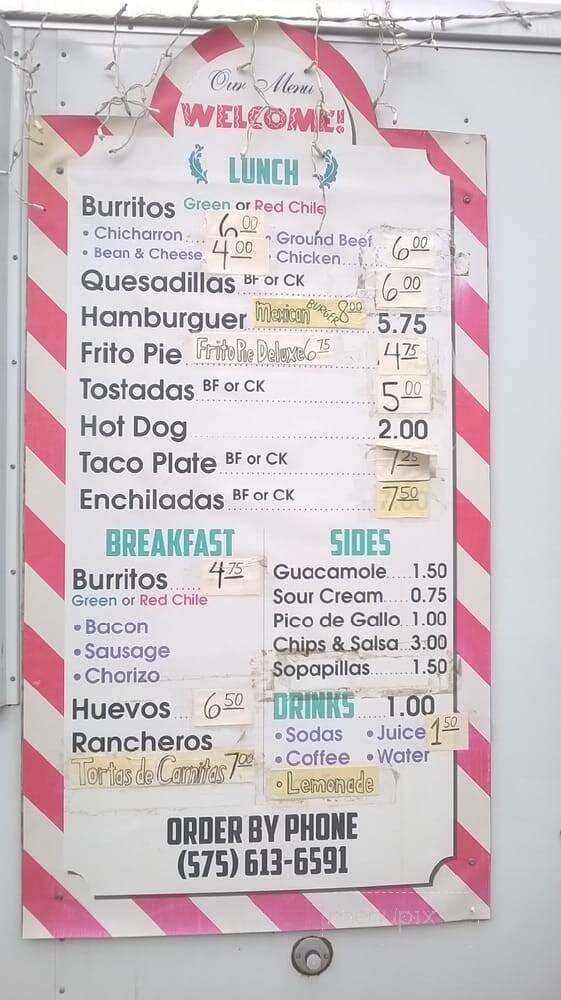 Our Menu
WELCOME!
LUNCH
Burritos Green or Red Chile
• Chicharron 6.00 • Ground Beef
• Bean & Cheese 4.00 • Chicken 6.00
Quesadillas BF or CK 6.00
Hamburguer Mexican BURGER 8.00 5.75
Frito Pie Frito Pie Deluxe 6.75 4.75
Tostadas BF or CK 5.00
Hot Dog 2.00
Taco Plate BF or CK 7.25
Enchiladas BF or CK 7.50
BREAKFAST
Burritos 4.75
Green or Red Chile
• Bacon
• Sausage
• Chorizo
Huevos 6.50
Rancheros
Tortas de Carnitas 7.00
SIDES
Guacamole 1.50
Sour Cream 0.75
Pico de Gallo 1.00
Chips & Salsa 3.00
Sopapillas 1.50
DRINKS 1.00
• Sodas • Juice 1.50
• Coffee • Water
• Lemonade
ORDER BY PHONE
(575) 613-6591